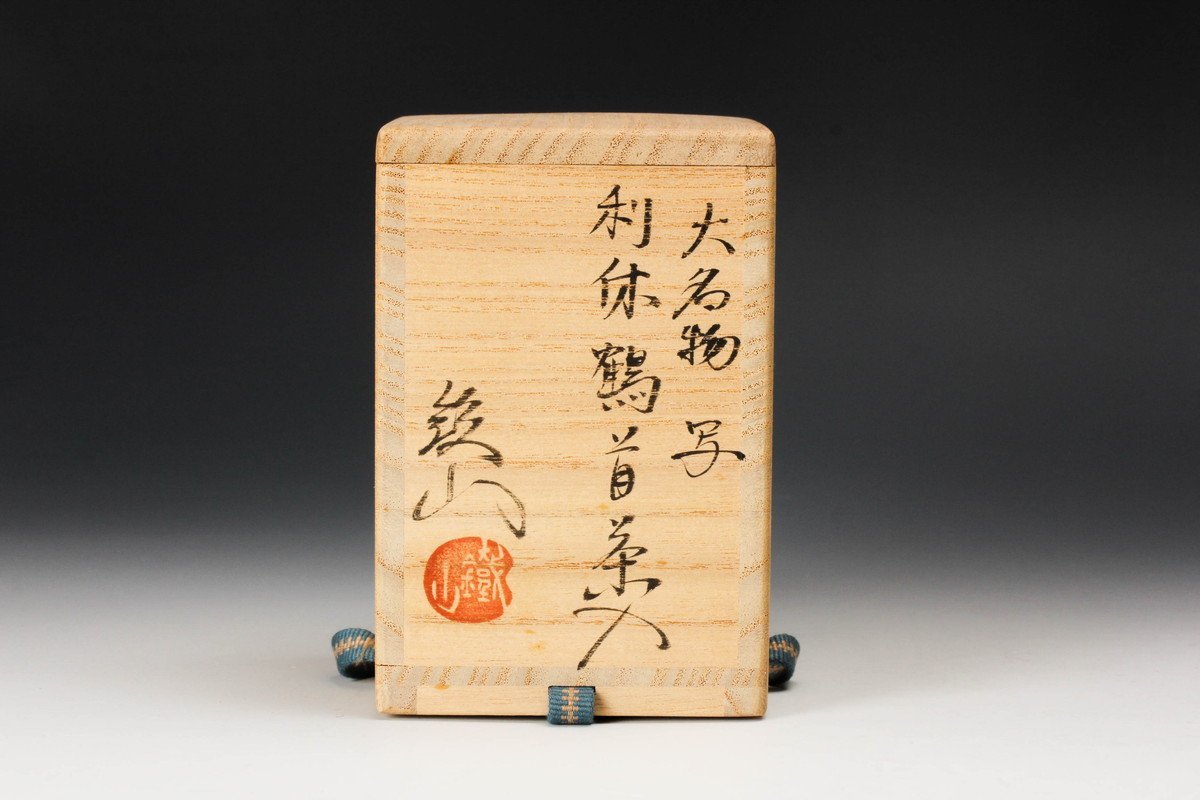 大名物 写
利休鶴首茶入
鉄山
鐵山